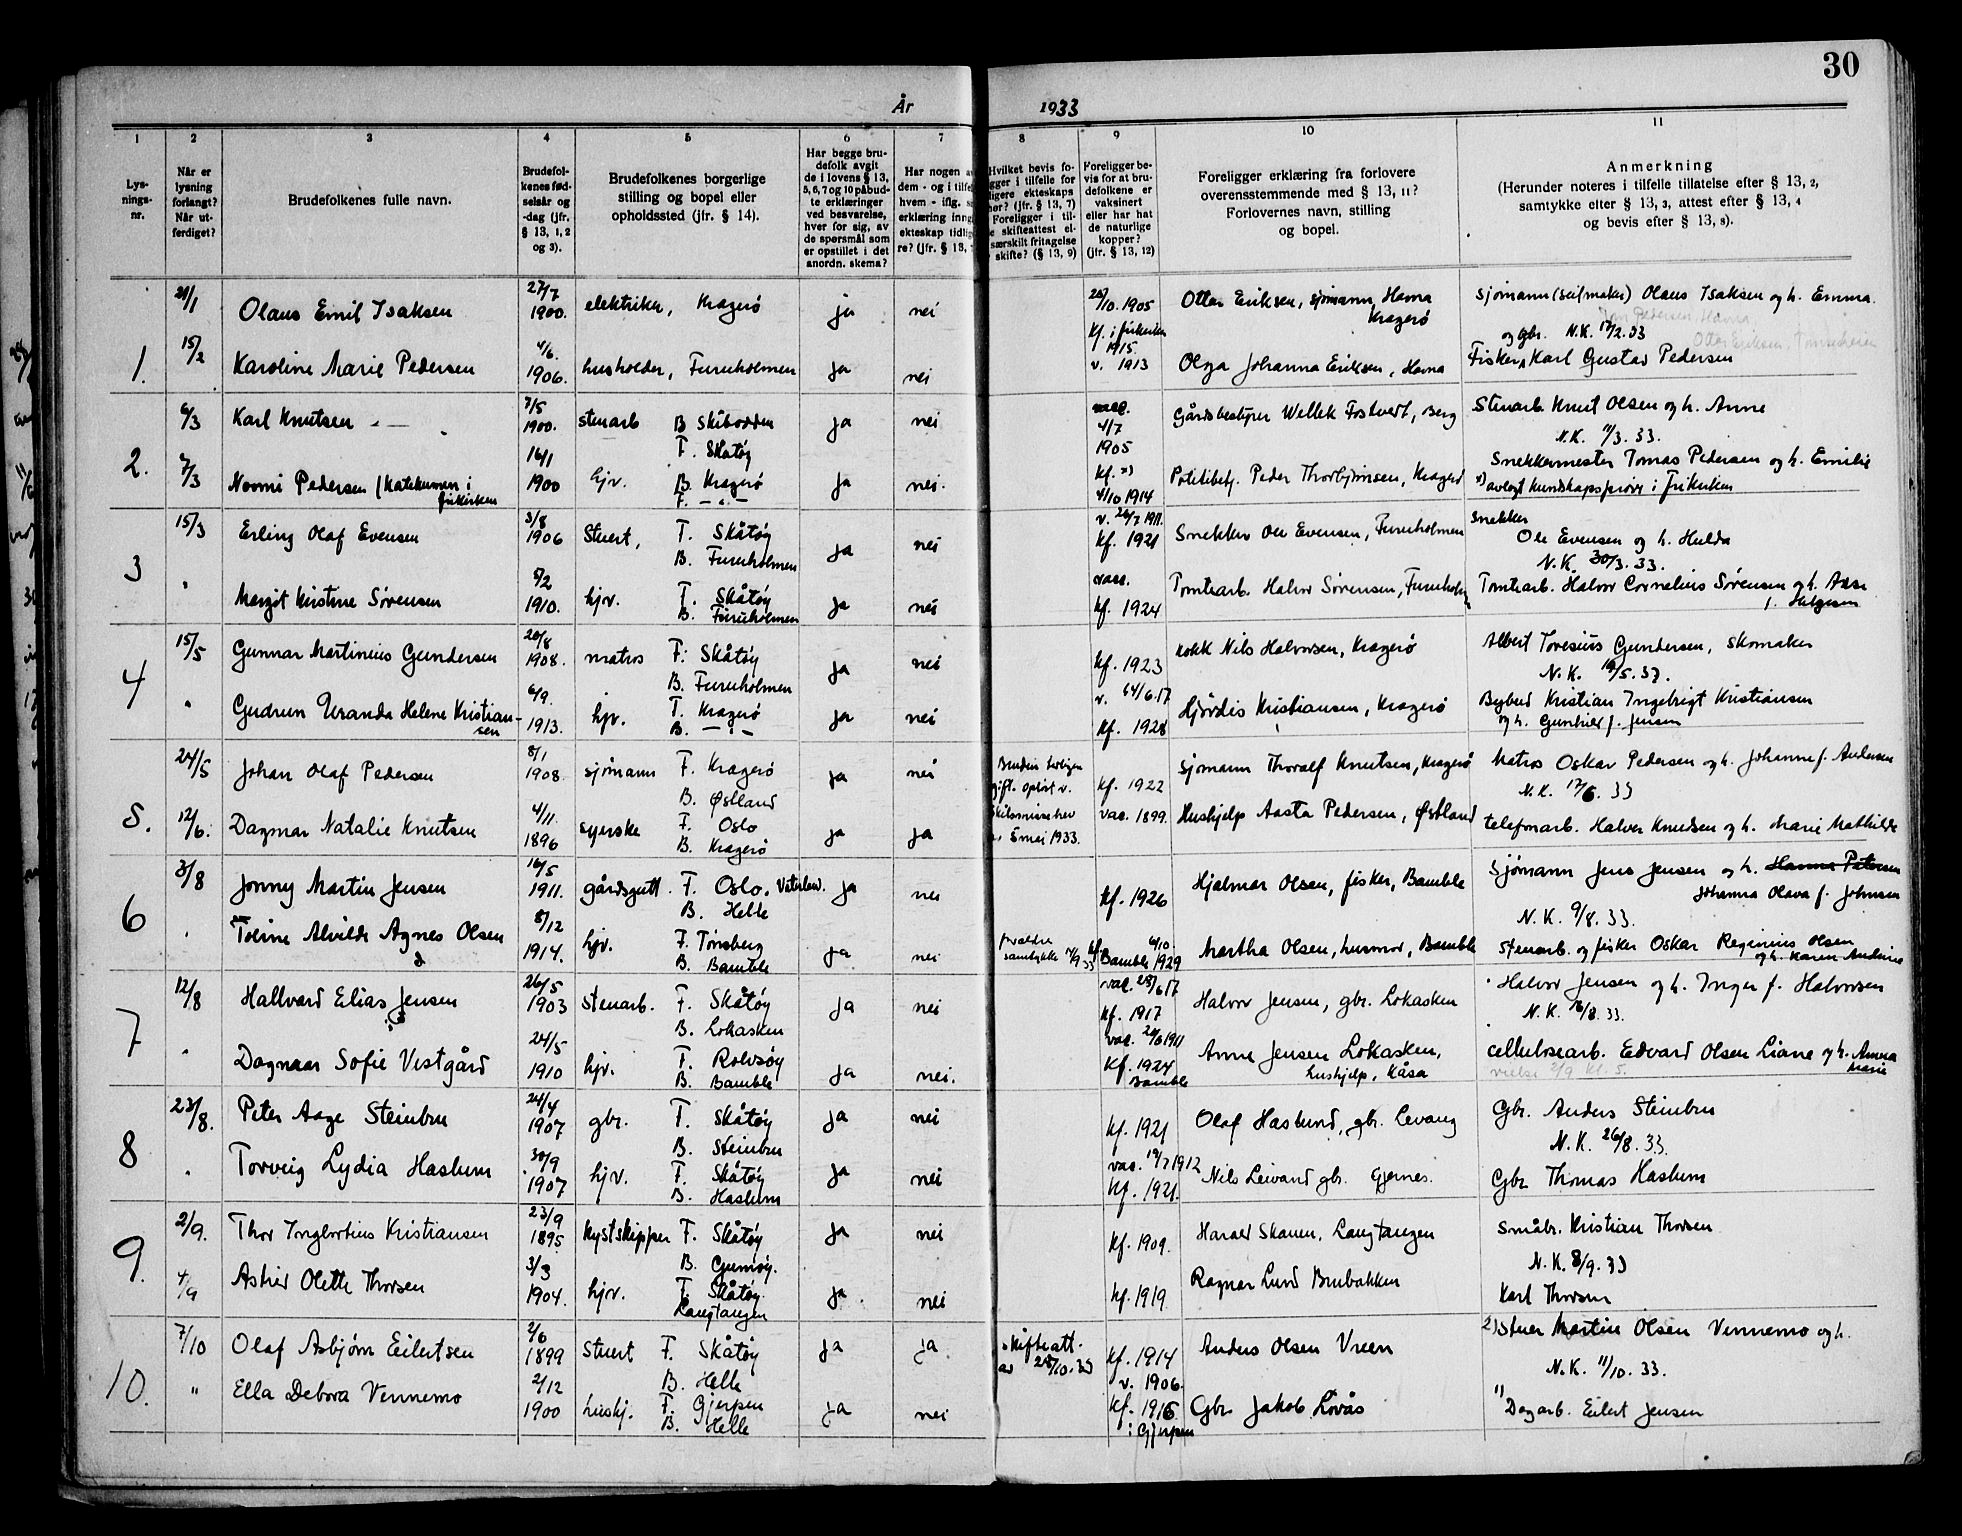 30
År 1933
1 2 3 4 5 6 7 8 9 10 11
Lys-
nings-
nr.
Når er
lysning
forlangt?
Når ut-
ferdiget?
Brudefolkenes fulle navn.
Brudefol-
kenes fød-
selsår og
-dag (jfr.
§ 13, 1, 2
og 3).
Brudefolkenes borgerlige
stilling og bopel eller
opholdssted (jfr. § 14).
Har begge bru-
defolk avgit
de i lovens § 13,
5, 6, 7 og 10 påbud-
te erklæringer
ved besvarelse,
hver for sig, av
de spørsmål som
er opstillet i det
anordn. skema?
Har nogen
dem - og i tilfe
hvem - iflg.
erklæring inng
ekteskap tidlig
re? (jfr. § 13,
Hvilket bevis fo-
gger i tilfelle for
ligere ekteskaps
hør? (jfr. § 13, 7)
Foreligger i til-
e skifteattest el-
særskilt fritagelse
skifte? (§ 13, 9)
Foreligger be-
vis for at bru-
defolkene er
vaksinert
eller har hat
de naturlige
kopper?
(jfr. § 13, 12)
Foreligger erklæring fra forlovere
overensstemmende med § 13, 11?
Forlovernes navn, stilling
og bopel.
Anmerkning
(Herunder noteres i tilfelle tillatelse efter § 13, 2,
samtykke efter § 13, 3, attest efter § 13, 4
og bevis efter § 13, 8).
1. Olaus Emil Isaksen 27/7 1900. elektriker, Kragerø ja nei 1905 Ottar Eriksen, sjømann, Havna Kragerø Sjømann (seilmaker) Olaus Isaksen og h. Emma.
Kf. i frikirken 1915. og gbr. N.K. 17/2.33
15/2 Karoline Marie Pedersen 4/6. 1906. husholder, Furuholmen ja nei v. 1913 Olga Johanna Eriksen, Havna Fisker Karl Gustav Pedersen
2. 6/3 Karl Knutsen 7/5 1900. stenarb B Skibodden F. Skåtøy ja nei vacc. 4/7 1905 Gårdsbestyrer Wellek Fostvedt, Berg Stenarb. Knut Olsen og h. Anne
N.K. 11/3.33.
7/3 Noomi Pedersen (Katekumen i frikirken 16/1 1900 hjv. B. Kragerø F. -„- ja nei. Kf. x) 4/10 1914 Politibetj. Peder Thorbjørnsen, Kragerø Snekkermester Tomas Pedersen og h. Emilie
x) avlagt kundskapsprøve i frikirken
3 15/3 Erling Olaf Evensen 3/8 1906 Stuert, F. Skåtøy B. Furuholmen ja nei v. 26/7 1911. Kf. 1921 Snekker Ole Evensen, Furuholmen Snekker Ole Evensen og h. Hulda
N.K. 30/3.33.
" Margit Kristine Sørensen 5/2 1910. hjv. F. Skåtøy B. Furuholmen ja nei vacc. Kf. 1924 Tomtearb. Halvor Sørensen, Furuholm Tomtearb. Halvor Cornelius Sørensen og h. Aase f. Helgesen
4 15/5 Gunnar Martinius Gundersen 20/8 1908. matros F: Skåtøy B. Furuholmen ja nei Kf. 1923 kokk Nils Halvorsen, Kragerø Albert Toresius Gundersen, skomaker
N.K. 19/5.33.
" Gudrun Uranda Helene Kristian-
sen 6/9. 1913. hjv. F. Kragerø B. -„- ja nei v. Kf. 1928 Hjørdis Kristiansen, Kragerø Bybud Kristian Ingebrigt Kristiansen og h. Gunhild f. Jensen
5. 24/5 Johan Olaf Pedersen 8/1 1908. sjømann F. Kragerø B. Østland ja nei Kf. 1922 Sjømann Thoralf Knutsen, Kragerø Matros Oskar Pedersen og h. Johanne f. Andersen
N.K. 17/6.33
12/6. Dagmar Natalie Knutsen 4/11. 1896 syerske F. Oslo B. Kragerø ja ja Bruden tidligere gift. opløst v. skilsmissebev 5 mai 1933. vac. 1899. Hushjelp Aasta Pedersen, Østland telefonarb. Halvor Knudsen og h. Marie Mathilde
6 3/8 Jonny Martin Jensen 16/5 1911. gårdsgutt. F. Oslo. Vaterland. B. Helle ja nei Kf. 1926 Hjalmar Olsen, fisker, Bamble Sjømann Jens Jensen og h. Hanna Petersen
Johanna Olava f. Johnsen
N.K. 9/8.33.
" Toline Alvilde Agnes Olsen 8/12 1914. hjv. F. Tønsberg B. Bamble ja nei foreldre samtykke 7/9 33 Kf. 6/10. Bamble 1929 Martha Olsen, husmor, Bamble Stenarb. og fisker Oskar Reginius Olsen og h. Karen Andrine
7 12/8 Hallvard Elias Jensen 26/5 1903 stenarb. F. Skåtøy B. Lokasken ja nei vac. 25/6 17 Kf. 1917 Halvor Jensen, gbr. Lokasken Halvor Jensen og h. Inger f. Halvorsen
N.K. 16/8.33.
" Dagmar Sofie Vestgård 24/5 1910 hjv. F. Rolvsøy B. Bamble ja nei. vac. 20/6 1911 Kf. 1924 Bamble Anne Jensen Lokasken, hushjelp, Kåsa cellulosearb. Edvard Olsen Liane og h. Anna Marie
vielse 2/9 kl. 5.
8 23/8. Peter Aage Steinbru 24/4 1907 gbr. F. Skåtøy B. Steinbru ja nei Kf. 1921 Olaf Haslund, gbr. Levang Gbr. Anders Steinbru
N.K. 26/8.33.
" Torveig Lydia Haslum 30/9 1907 hjv. F. Skåtøy B. Haslum ja nei vac. 19/7 1912 Kf. 1921. Nils Leivand gbr. Gjernes. Gbr Thomas Haslum
9. 2/9. Thor Ingbortius Kristiansen 23/9 1895 kystskipper F. Skåtøy B. Gumøy. ja nei Kf. 1909. Harald Skauen, Langtangen Småbr. Kristian Thorsen
N.K. 8/9.33
4/9 Astrid Olette Thorsen 3/3 1904. hjv. F. Skåtøy. Langtangen ja nei Kf. 1919 Ragnar Lund Brubakken Karl Thorsen
10. 7/10 Olaf Asbjørn Eilertsen 2/6 1899 Stuert F. Skåtøy B. Helle ja ja. skifteatt. av 28/10.33 Kf. 1914 Anders Olsen Vreen 2) Stuer Martin Olsen Vennemo og h.
N.K. 11/10.33.
" Ella Debora Vennemo 2/12 1900 hushj. F. Gjerpen B. Helle ja nei v. 1906. Kf. 1915 i Gjerpen Gbr Jakob Lovås 1) Dagarb. Eilert Jensen